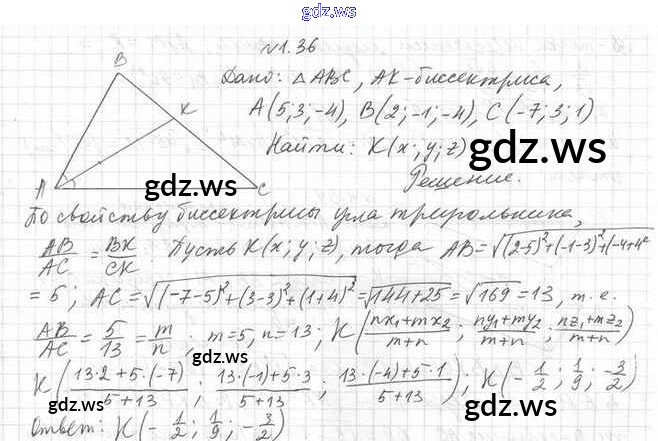 gdz.ws
№1.36
B
Дано: △ABC, AK-биссектриса,
K
A(5;3;-4), B(2;-1;-4), C(-7;3;1)
Найти: K(x;y;z)
gdz.ws
Решение.
A
gdz.ws
C
По свойству биссектрисы угла треугольника,
AB/AC = BK/CK. Пусть K(x;y;z), тогда AB=√((2-5)²+(-1-3)²+(-4+4)²
= 5; AC=√((-7-5)²+(3-3)²+(1+4)²=√144+25=√169=13, т.е.
AB/AC = 5/13 = m/n; m=5, n=13; K((nx₁+mx₂)/(m+n); (ny₁+my₂)/(m+n); (nz₁+mz₂)/(m+n))
gdz.ws
K((13·2+5·(-7))/(5+13); (13·(-1)+5·3)/(5+13); (13·(-4)+5·1)/(5+13)); K(-1/2; 1/9; -3/2)
gdz.ws
gdz.ws
Ответ: K(-1/2; 1/9; -3/2)